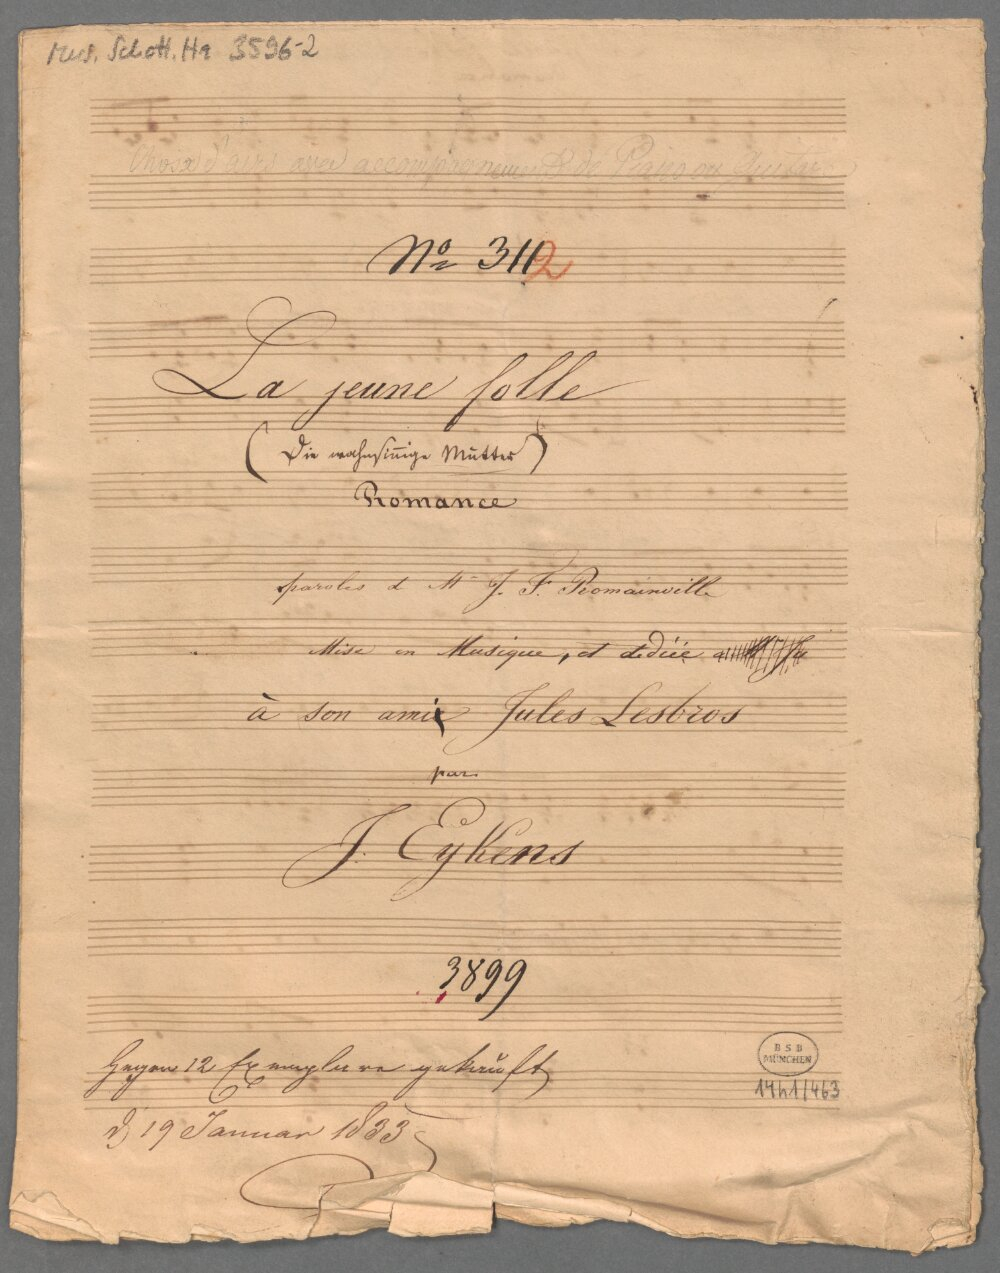 Mus. Schott. Ha 3596-2
Choix d'airs avec accompagnement de Piano ou Guitare
No 3112
La jeune folle
(Die wahnsinnige Mutter)
Romance
paroles d Mr J. F. Romainville
Mise en Musique, et dediée
à son ami Jules Lesbros
par
J. Eykens
3899
Gegen 12 Exemplare gekauft
d 19 Januar 1833
BSB
MÜNCHEN
14h1/463